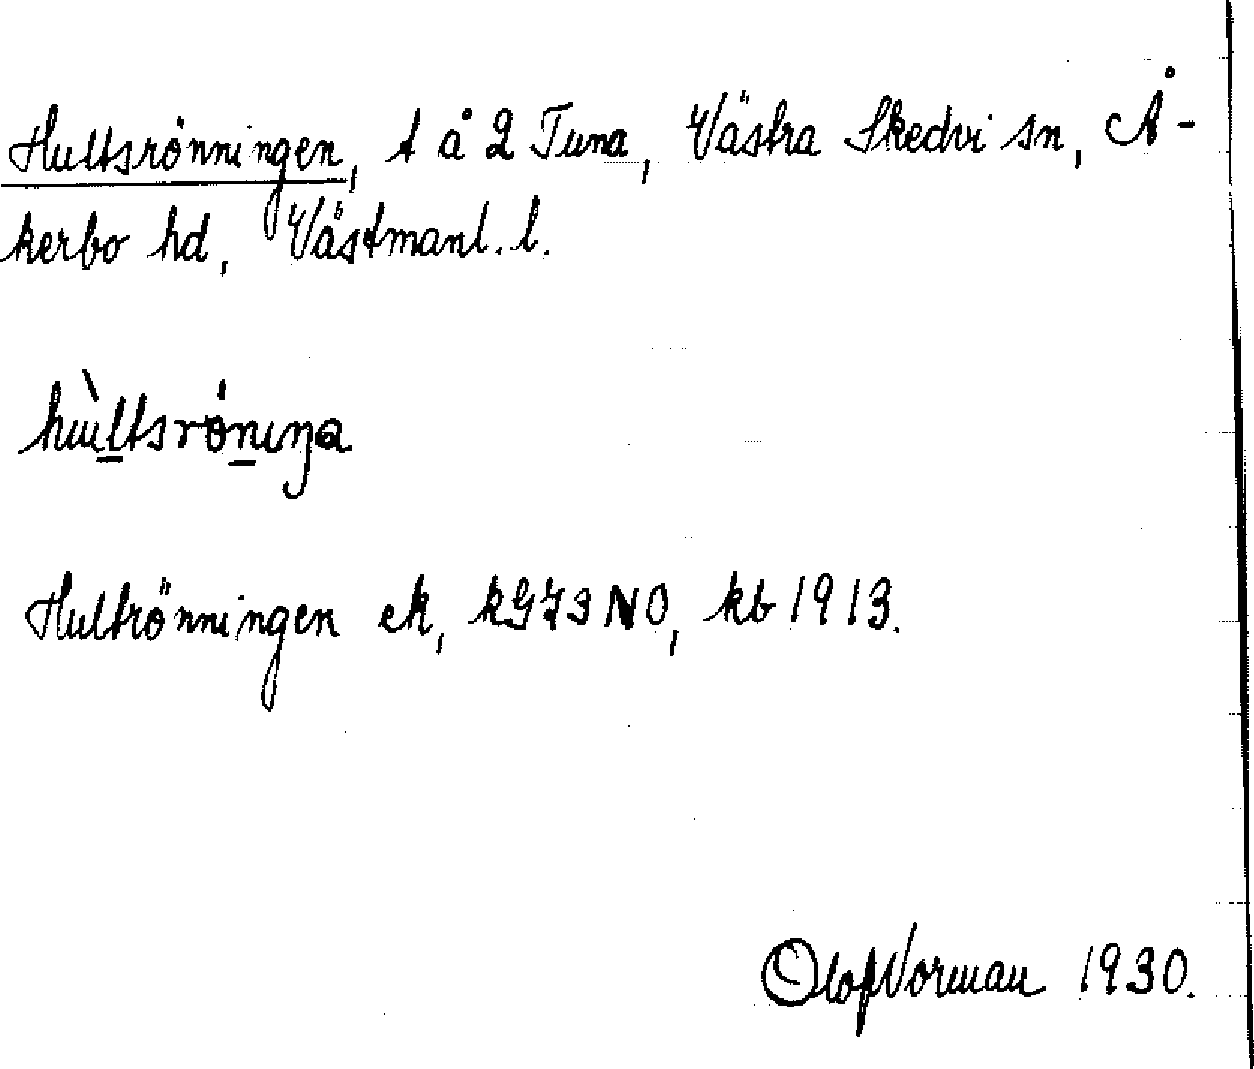 Hultsrönningen, t å 2 Tuna, Västra Skedvi sn, Å-
kerbo hd, Västmanl. l.
hùltsrö́nıŋa
Hultrönningen ek, kG73NO, kb 1913.
Olof Vorman 1930.